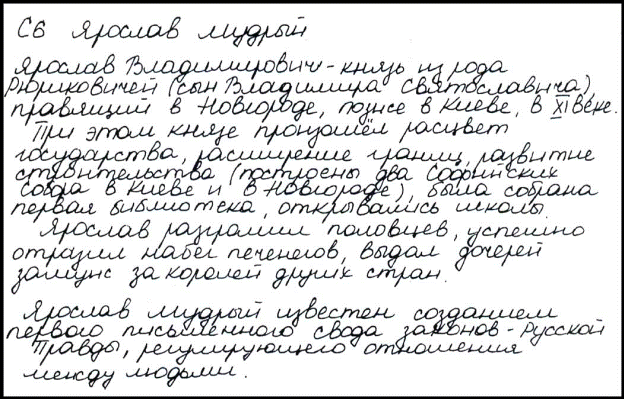 С6 Ярослав мудрый
Ярослав Владимирович - князь из рода
Рюриковичей (сын Владимира Святославича),
правящий в Новгороде, позже в Киеве, в XI веке.
При этом князе произошёл расцвет
государства, расширение границ, развитие
строительства (построены два Софийских
собра в Киеве и в Новгороде), была собрана
первая библиотека, открывались школы.
Ярослав разгромил половцев, успешно
отразил набег печенегов, выдал дочерей
замуж за королей других стран.
Ярослав мудрый известен созданием
первого письменного свода законов - Русской
Правды, регулирующего отношения
между людьми.